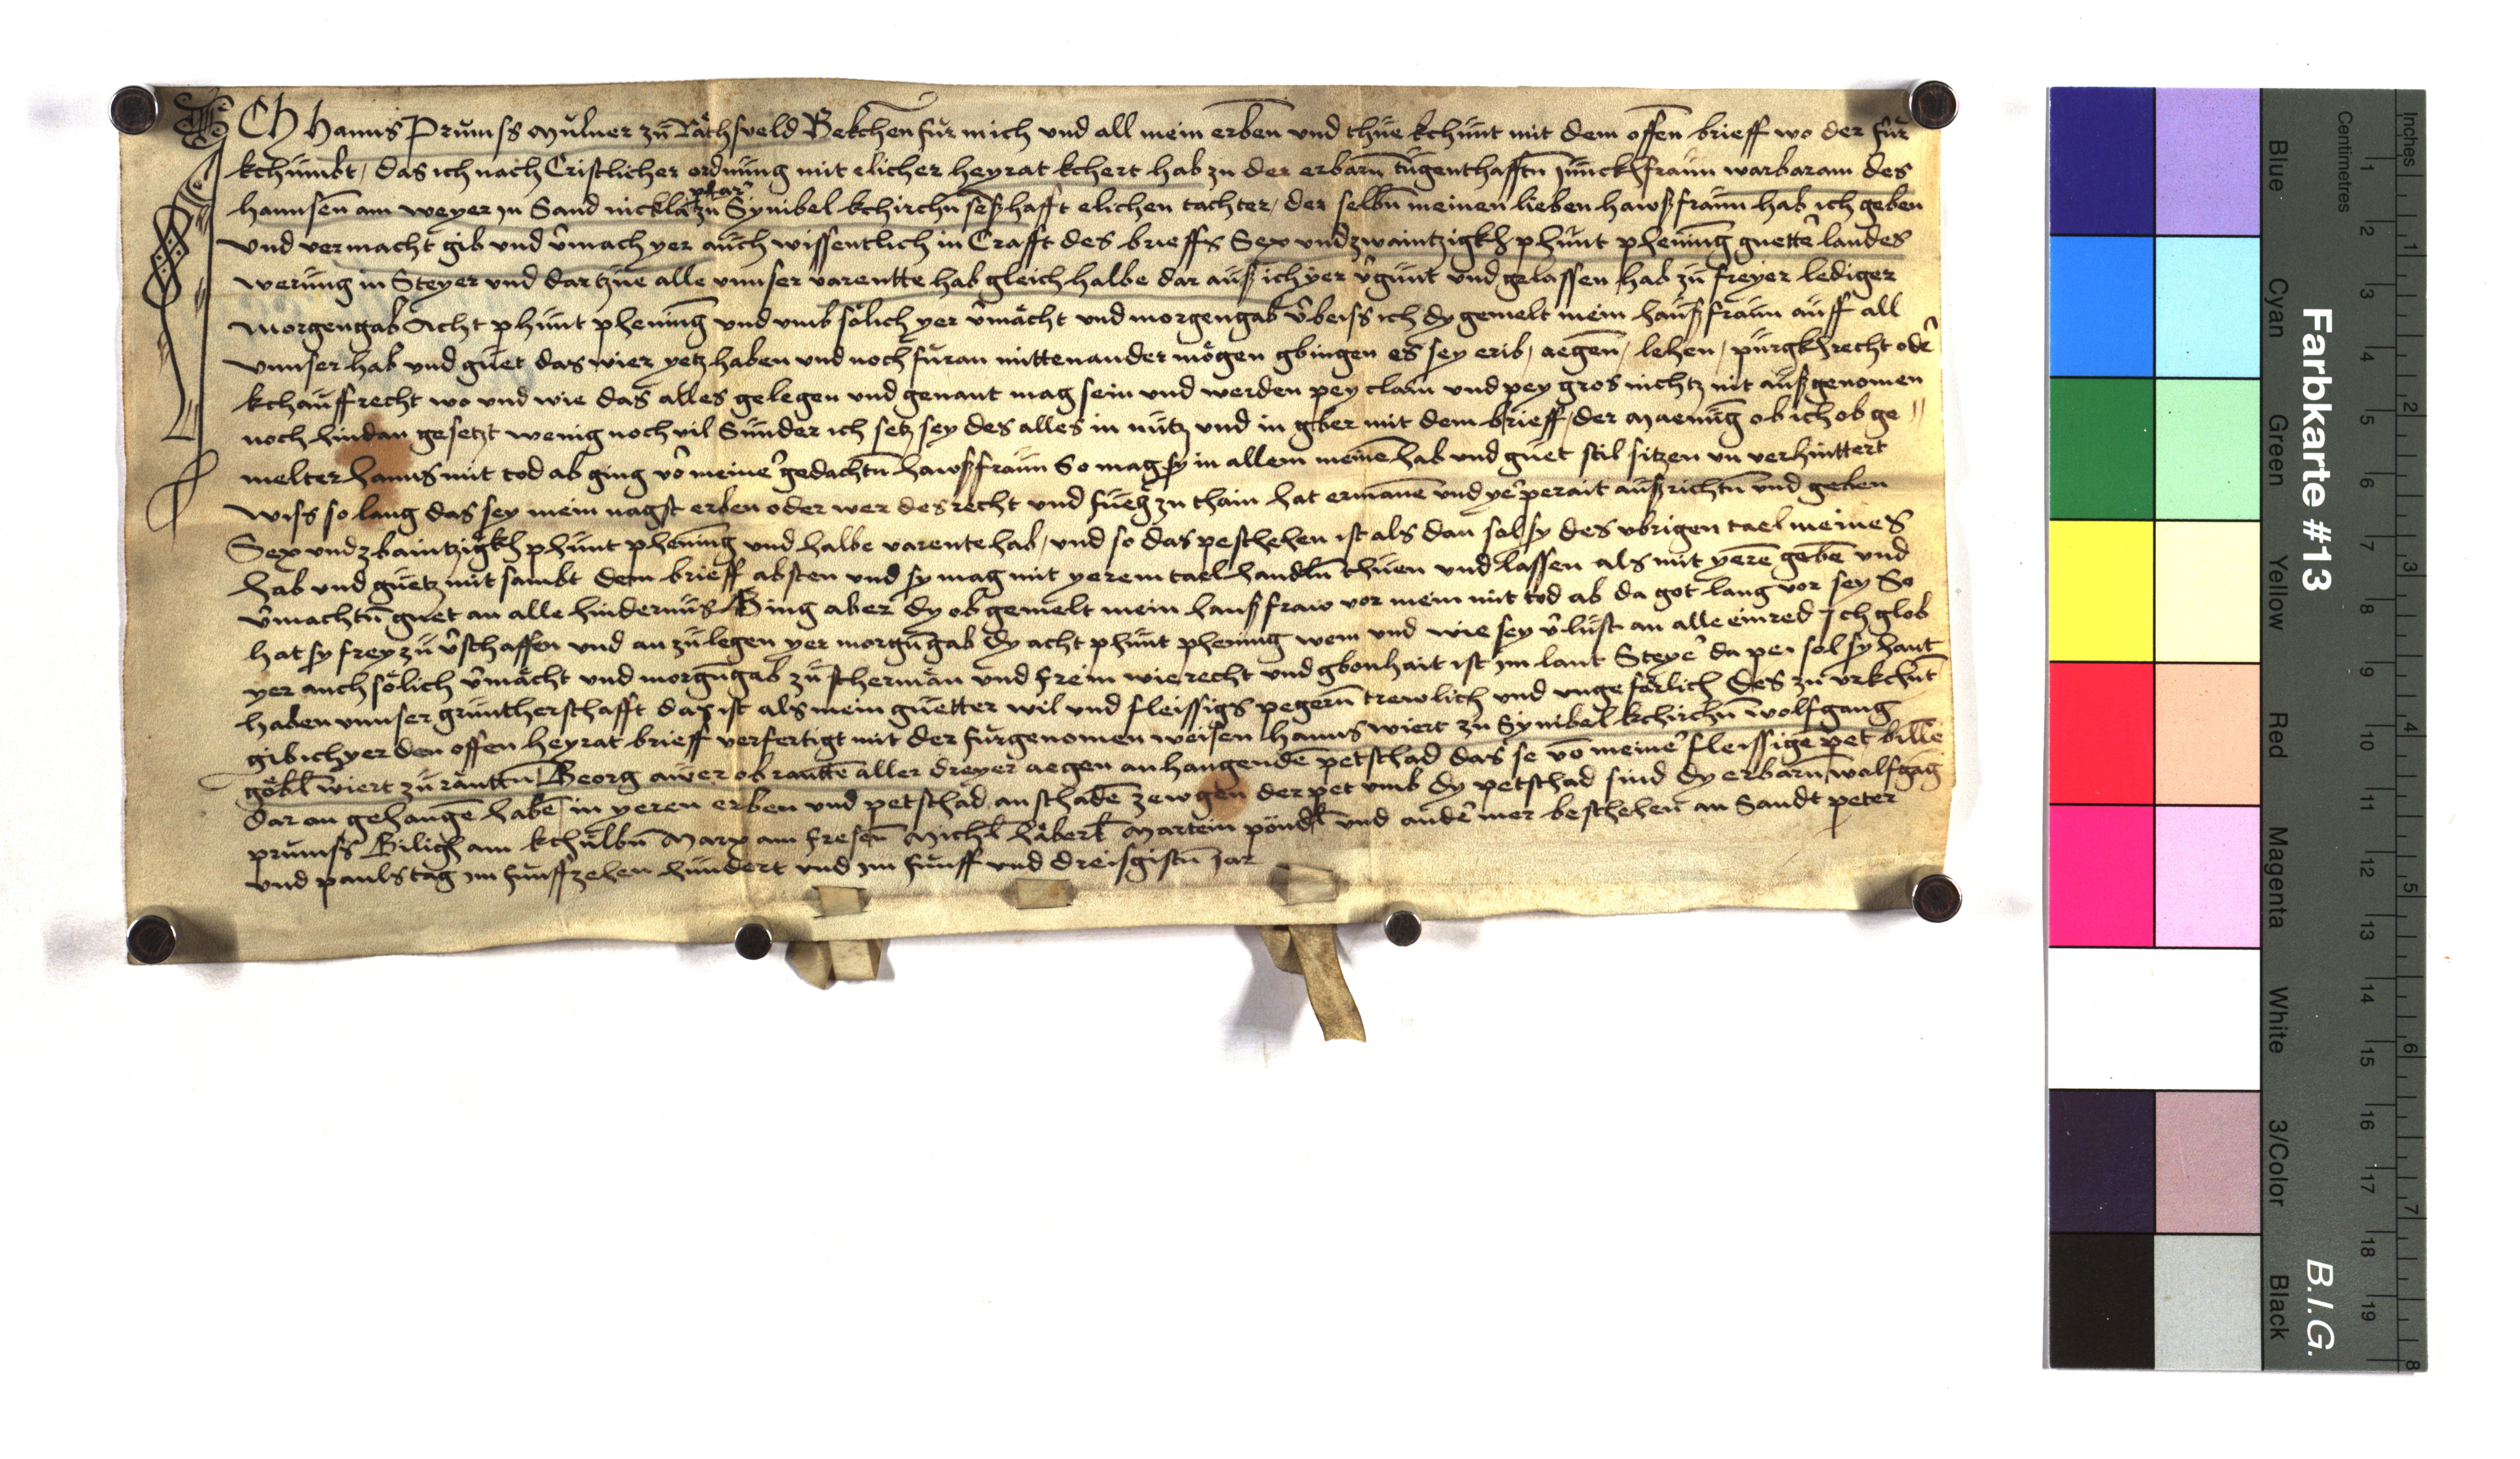 ICh Hanns Prumss mulner zu Rathsveld Bekchen fur mich und all mein erben und thue kchunt mit dem offen brieff wo der fur
kchumbt / das ich nach Cristlicher ordnung mit elicher heyrat kchert hab zu der erbarn tugenthafftn junckhfraun warbaram des
pfar
hannsen am weyer jn Sand nickla zu Synibel kchirchn seßhafft elichen tachter / der selbn meinen lieben hawßfraun hab ich geben
und vermacht gib und vmach yer auch wissentlich in Crafft des brieffs Sex und zwaintzigkh phunt phening guette landes
werung in Steyer und dar zue alle vnnser varentte hab gleich halbe dar auß ich yer vgunt und gelassen hab zu freyer lediger
morgengab Acht phunt phening und umb solich yer vmacht und morgengab vbeiss ich dy gemelt mein haußfraun auff all
vnnser hab und guet das wier yetz haben und noch furan mittenander mogen gbingen es sey erib / aegen / lehen / purgkhrecht ode
kchauffrecht wo und wie das alles gelegen und genant mag sein und werden pey clain und pey gros nichtz nit außgenomen
noch hindan gesetzt wenig noch vil Sunder ich setz sey des alles in nutz und in gber mit dem brieff / der maenug ob ich ob ge
melter hanns mit tod ab ging vo meine gedachtn hawßfraun So mag sy in allem meine hab und guet stil sitzen un verhinttert
wiss so lang das sey mein nagst erben oder wer des recht und fueg zu thain hat ermane und ye perait außrichtn und geben
Sex und zbaintzigkh phunt phening und halbe varente hab / und so das peschehen ist als dan sol sy des ubrigen tael meines
hab und guetz mit sambt dem brieff absten und sy mag mit yerem tael handln thuen und lassen als mit yere gebe und
vmachtn guet an alle hindernus Ging aber dy ob gemelt mein haußfraw vor mein mit tod ab da got lang vor sey So
hat sy frey zu vschaffen und an zulegen yer morgngab dy acht phunt phening wem und wie sey v lust an alle einred Ich glob
yer auch solich vmacht und morgngab zu scherman und frein wie recht und gbonhait ist jm lant Steye da pei sol sy hant
haben vnnser gruntherschafft das ist als mein guetter wil und fleissigs pegern trewlich und ungeforlich Des zu urkchut
gib ich yer den offen heyrat brieff verfertigt mit der furgenomen weisen hanns wiert zu Synibel kchirchn wolfgang
gobl wiert zu rauttn Georg awer ob rautte aller dreyer aegen anhangende petschad das se vo meine fleissige pet bille
dar an gehange habe in yeren erben und petschad an schade zewgen der pet umb dy petschad sind dy erbarn wolfgag
prumss Gilig am kchulbn Marx am fresen Michl haberl Martein pondl und ande mer beschehen an Sandt peter
und pauls tag jm funffzehen hundert und jm funff und dreisgistn jar
Farbkarte #13
B.I.G.
Centimetres
Inches
Blue
Cyan
Green
Yellow
Red
Magenta
White
3/Color
Black
1 2 3 4 5 6 7 8 9 10 11 12 13 14 15 16 17 18 19
1 2 3 4 5 6 7 8